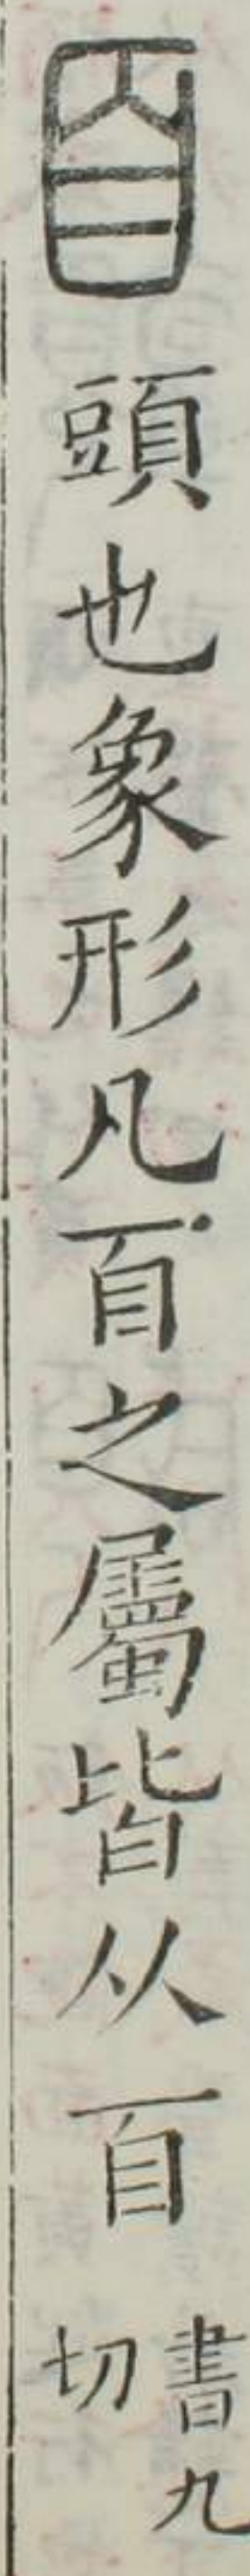 𦣻頭也象形凡𦣻之屬皆从𦣻書九切